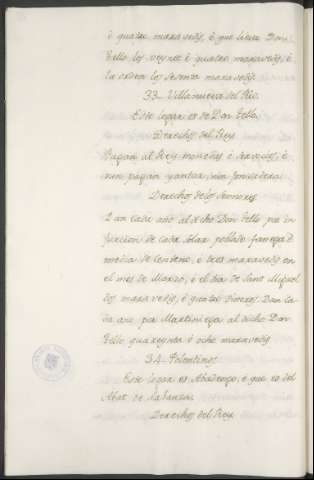 è quatro maravedis, è que lieva Don
Tello los veynte è quatro maravedis, è
la orden los sesenta maravedis.
33. Villanueva del Rio.
Este logar es de Don Tello.
Derechos del Rey.
Pagan al Rey monedas è servicios, è
non pagan yantar, nin fonsadera.
Derechos de los Señores.
Dan cada año al dicho Don Tello por in
furcion de cada solar poblado fanega è
media de centeno, è tres maravedis en
el mes de Marzo, è el dia de Sant Miguel
dos maravedis, è quatro dineros. Dan ca-
da año por Martiniega al dicho Don
Tello quarenta è ocho maravedis.
34. Polentinos.
Este logar es Abadengo, è que es del
Abat de
Derechos del Rey.